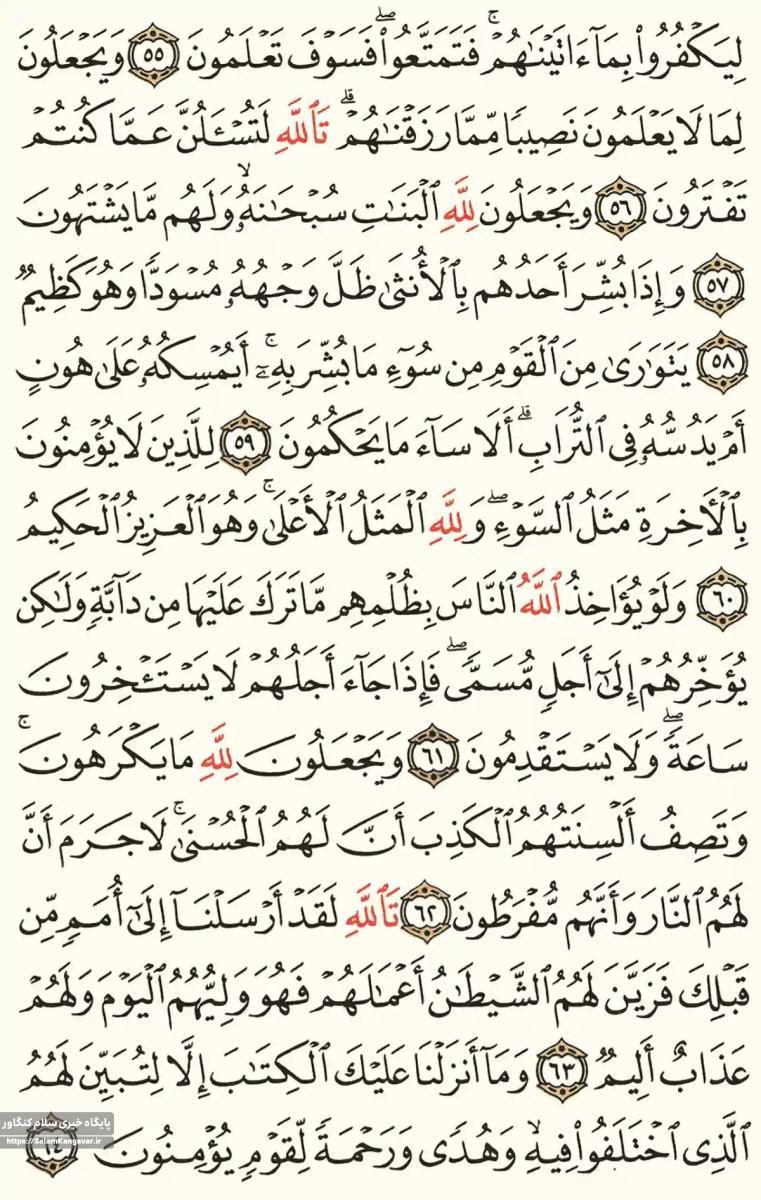 لِيَكْفُرُوا۟ بِمَآ ءَاتَيْنَٰهُمْ ۚ فَتَمَتَّعُوا۟ ۖ فَسَوْفَ تَعْلَمُونَ ٥٥ وَيَجْعَلُونَ
لِمَا لَا يَعْلَمُونَ نَصِيبًا مِّمَّا رَزَقْنَٰهُمْ ۗ تَٱللَّهِ لَتُسْـَٔلُنَّ عَمَّا كُنتُمْ
تَفْتَرُونَ ٥٦ وَيَجْعَلُونَ لِلَّهِ ٱلْبَنَٰتِ سُبْحَٰنَهُۥ ۙ وَلَهُم مَّا يَشْتَهُونَ
٥٧ وَإِذَا بُشِّرَ أَحَدُهُم بِٱلْأُنثَىٰ ظَلَّ وَجْهُهُۥ مُسْوَدًّا وَهُوَ كَظِيمٌ
٥٨ يَتَوَٰرَىٰ مِنَ ٱلْقَوْمِ مِن سُوٓءِ مَا بُشِّرَ بِهِۦٓ ۚ أَيُمْسِكُهُۥ عَلَىٰ هُونٍ
أَمْ يَدُسُّهُۥ فِى ٱلتُّرَابِ ۗ أَلَا سَآءَ مَا يَحْكُمُونَ ٥٩ لِلَّذِينَ لَا يُؤْمِنُونَ
بِٱلْأَخِرَةِ مَثَلُ ٱلسَّوْءِ ۖ وَلِلَّهِ ٱلْمَثَلُ ٱلْأَعْلَىٰ ۚ وَهُوَ ٱلْعَزِيزُ ٱلْحَكِيمُ
٦٠ وَلَوْ يُؤَاخِذُ ٱللَّهُ ٱلنَّاسَ بِظُلْمِهِم مَّا تَرَكَ عَلَيْهَا مِن دَآبَّةٍ وَلَٰكِن
يُؤَخِّرُهُمْ إِلَىٰٓ أَجَلٍ مُّسَمًّى ۖ فَإِذَا جَآءَ أَجَلُهُمْ لَا يَسْتَـْٔخِرُونَ
سَاعَةً ۖ وَلَا يَسْتَقْدِمُونَ ٦١ وَيَجْعَلُونَ لِلَّهِ مَا يَكْرَهُونَ ۚ
وَتَصِفُ أَلْسِنَتُهُمُ ٱلْكَذِبَ أَنَّ لَهُمُ ٱلْحُسْنَىٰ ۚ لَا جَرَمَ أَنَّ
لَهُمُ ٱلنَّارَ وَأَنَّهُم مُّفْرَطُونَ ٦٢ تَٱللَّهِ لَقَدْ أَرْسَلْنَآ إِلَىٰٓ أُمَمٍ مِّن
قَبْلِكَ فَزَيَّنَ لَهُمُ ٱلشَّيْطَٰنُ أَعْمَٰلَهُمْ فَهُوَ وَلِيُّهُمُ ٱلْيَوْمَ وَلَهُمْ
عَذَابٌ أَلِيمٌ ٦٣ وَمَآ أَنزَلْنَا عَلَيْكَ ٱلْكِتَٰبَ إِلَّا لِتُبَيِّنَ لَهُمُ
ٱلَّذِى ٱخْتَلَفُوا۟ فِيهِ ۙ وَهُدًى وَرَحْمَةً لِّقَوْمٍ يُؤْمِنُونَ ٦٤
پایگاه خبری سلام کنگاور
https://SalamKangavar.ir